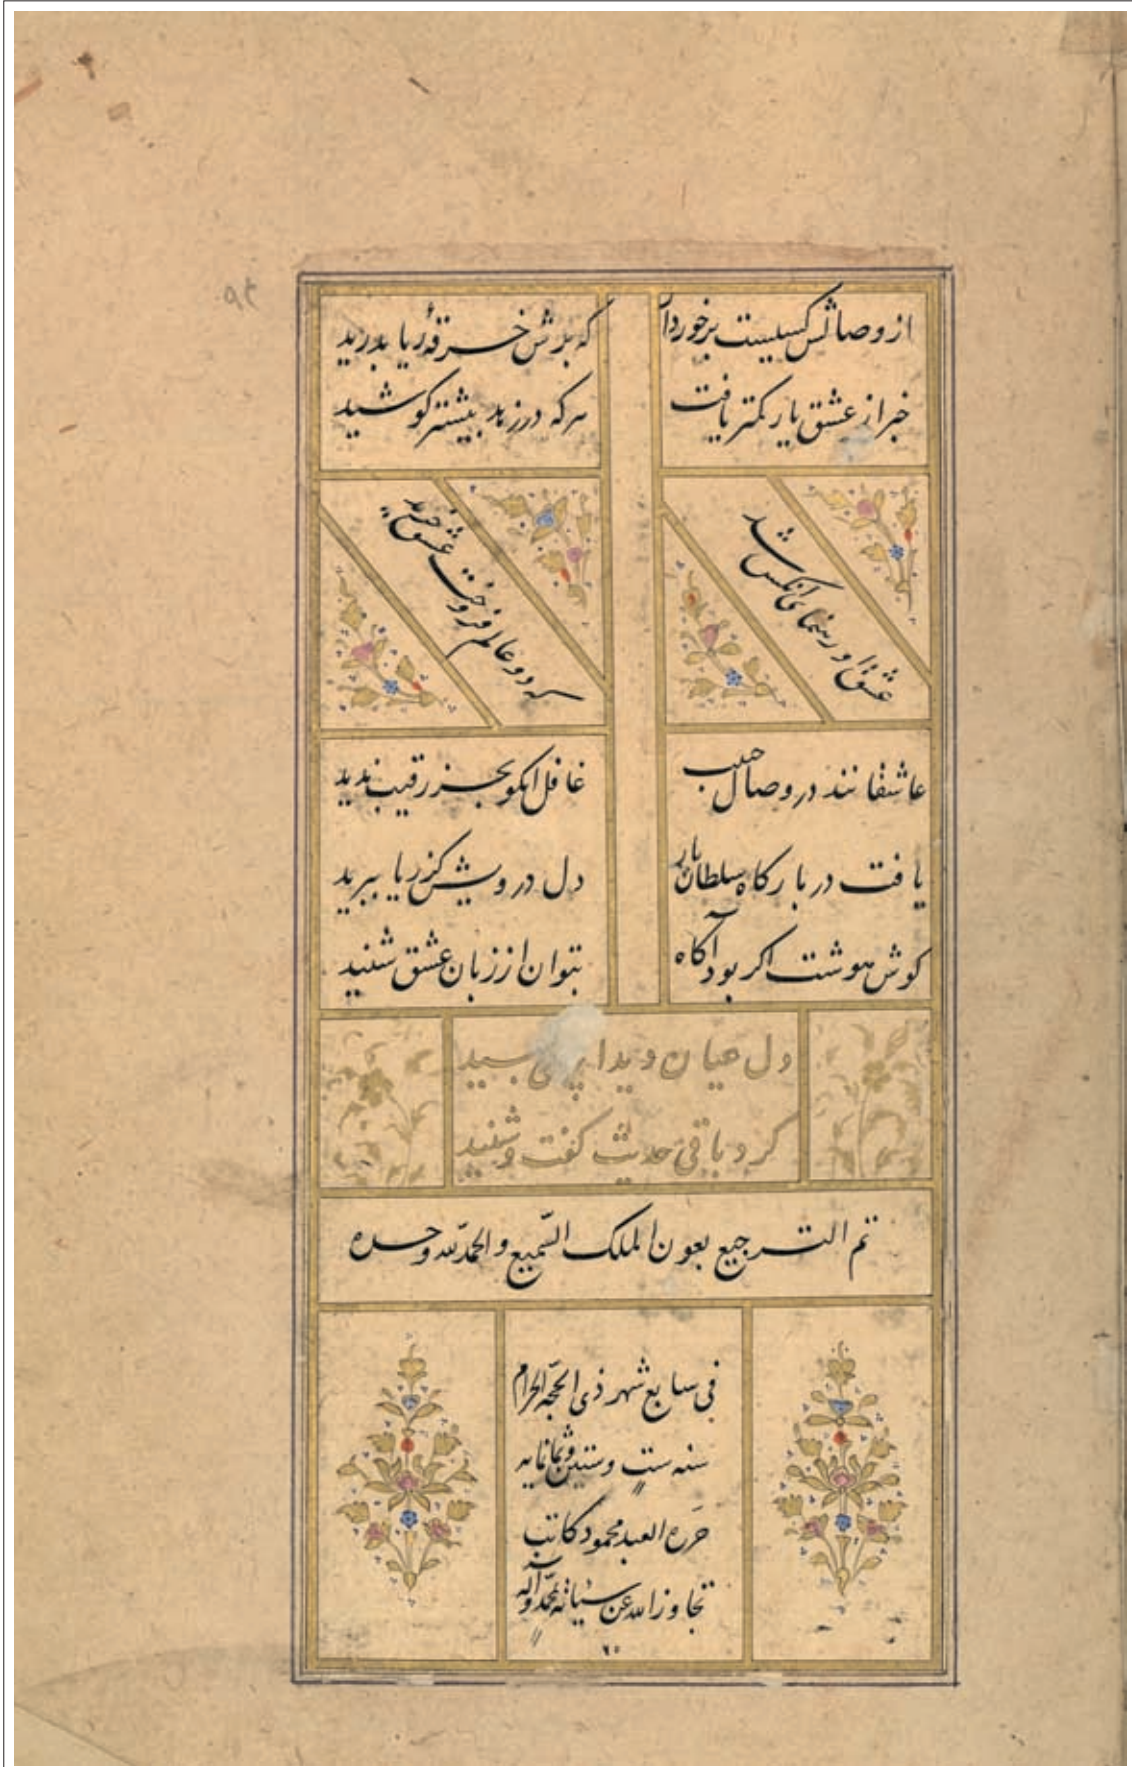 از وصالش کسیست برخوردار
که بدش خرقهٔ ریا بدرید
خبر از عشق یار کمتر یافت
هرکه در زهد بیشتر کوشید
عشق او رهنمای انکس شد
که دو عالم فروخت عشق خرید
عاشقانند در وصال حبیب
غافل انکو بجز رقیب ندید
یافت در بارکاه سلطان بار
دل درویش کز ریا ببرید
کوش هوشت اکر بود آکاه
بتوان از زبان عشق شنید
دل عیان دید
کرد باقی حدیث کفت و شنید
تم الترجیع بعون الملک السّمیع والحمدلله وحده
فی سابع شهر ذی الحجّه الحرام
سنه ستٍ وستین وثمانمایه
حرره العبد محمود کاتب
تجاوز الله عن سیئاته بمحمّد وآله